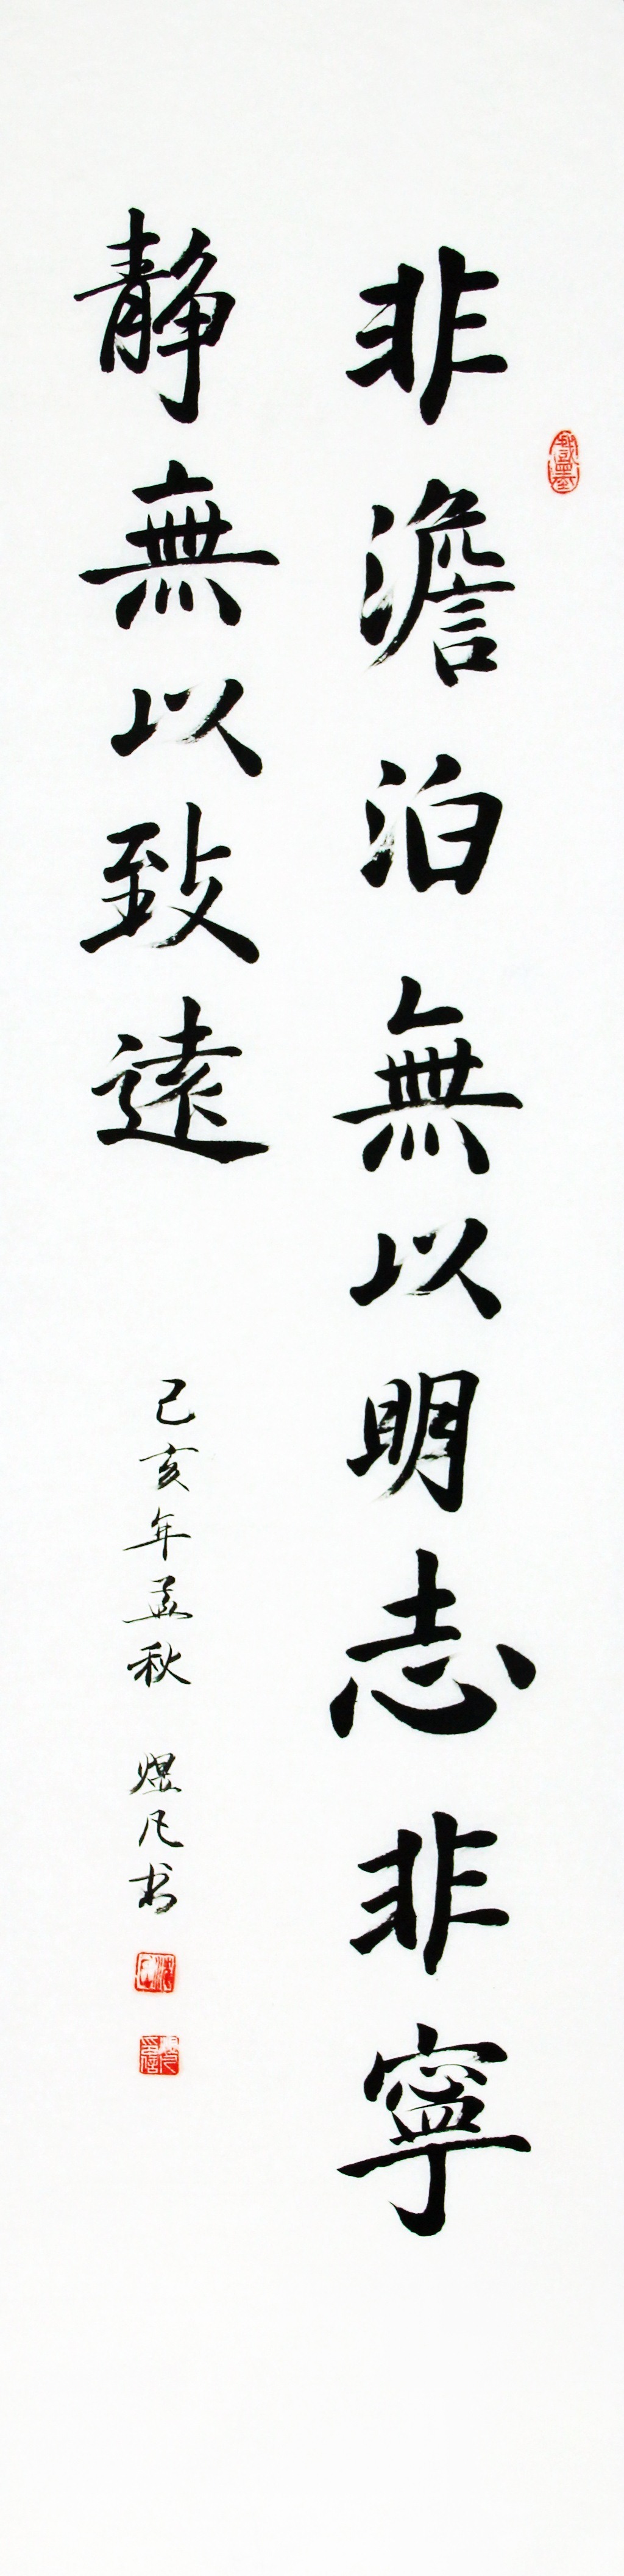 非澹泊無以明志非寧
静無以致遠
己亥年孟秋 煜凡书